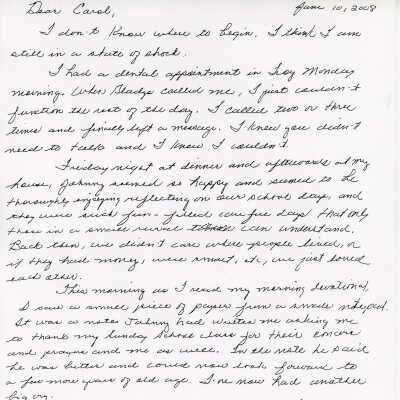 June 10, 2008
Dear Carol,
I don't know where to begin. I think I am
still in a state of shock.
I had a dental appointment in Troy Monday
morning. When Gladys called me, I just couldn't
function the rest of the day. I called two or three
times and finally left a message. I knew you didn't
need to talk and I know I couldn't.
Friday night at dinner and afterwards at my
house, Johnny seemed so happy and seemed to be
thoroughly enjoying reflecting on our school days, and
they were such fun-filled carefree days that only
those in a small rural can understand.
Back then, we didn't care where people lived, or
if they had money, were smart, etc, we just loved
each other.
This morning as I read my morning devotional,
I saw a small piece of paper from a small notepad.
It was a note Johnny had written me asking me
to thank my Sunday school class for their concern
and prayers and me as well. In the note he said
he was better and could now look forward to
a few more years of old age. I've now had another
big cry.